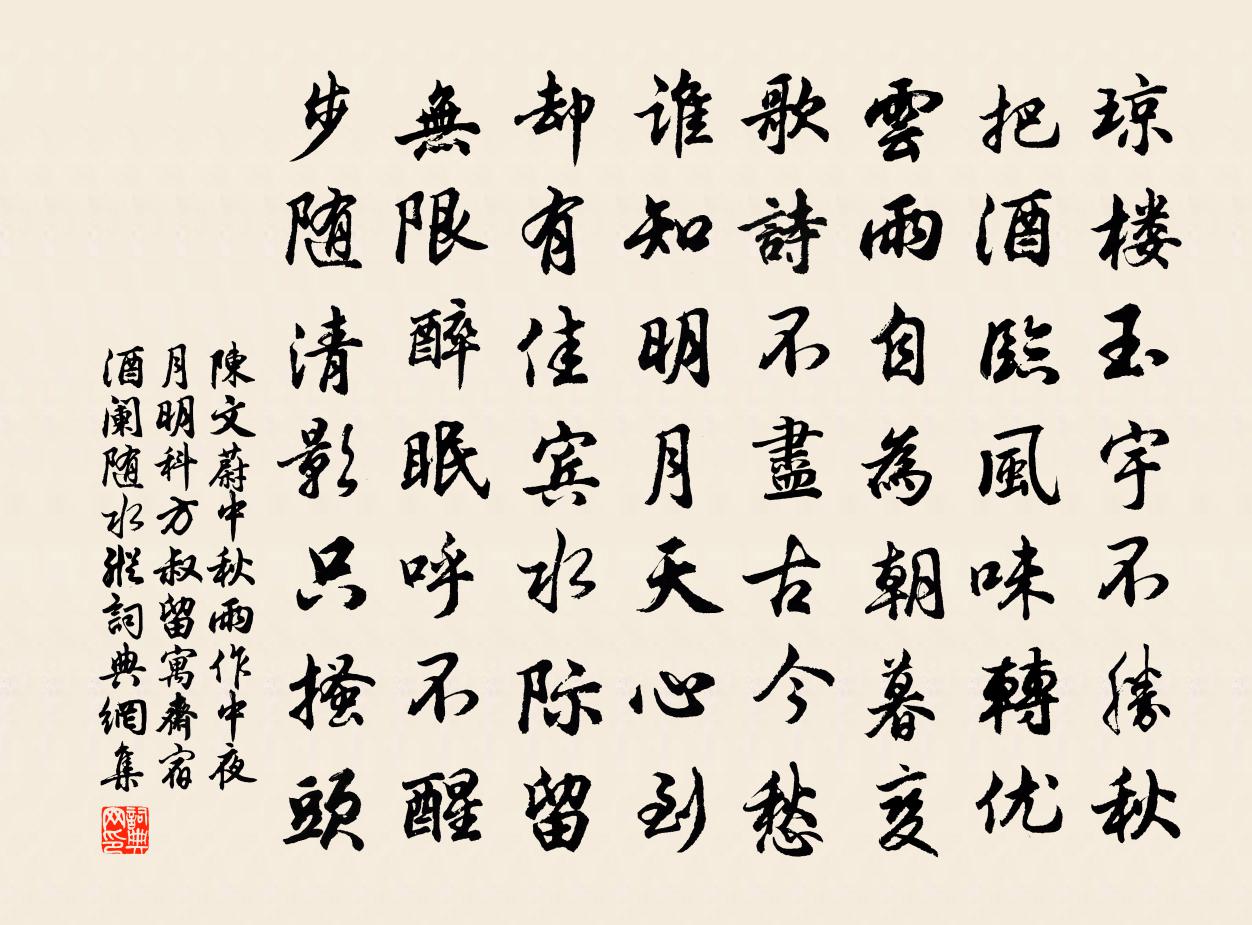 琼楼玉宇不勝秋
把酒臨風味轉优
雲雨自為朝暮变
歌詩不盡古今愁
谁知明月天心到
却有佳宾水际留
無限醉眠呼不醒
步随清影只搔頭
陳文蔚中秋雨作中夜
月明科方叔留寓齋宿
酒阑随水縱詞典網集
詞典
网印